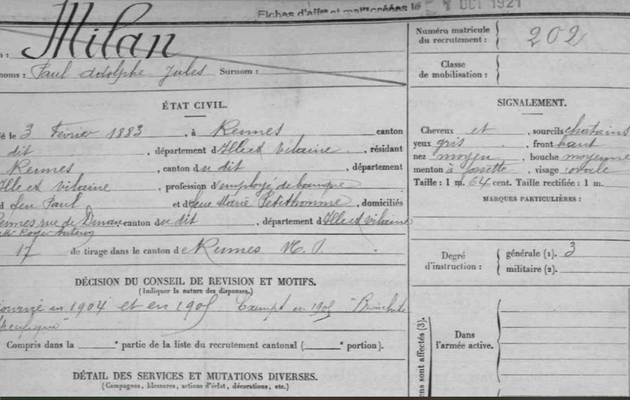 Fiches d'effet et mat créées le OCT 1921
Milan
noms : Paul Adolphe Jules Surnom :
Numéro matricule
du recrutement : 202
Classe
de mobilisation :
ÉTAT CIVIL.
é le 3 Février 1883, à Rennes canton
dit, département d'Ille et Vilaine, résidant
Rennes canton du dit, département
Ille et Vilaine, profession d'employé de banque
d feu Paul et de feue Marie Petithomme, domiciliés
Rennes rue de Dinan canton du dit, département d'Ille et Vilaine
17 de tirage dans le canton de Rennes
SIGNALEMENT.
Cheveux et, sourcils chatains
yeux gris, front haut
nez moyen, bouche moyenne
menton à fossette, visage ovale
Taille : 1 m. 64 cent. Taille rectifiée : 1 m.
MARQUES PARTICULIÈRES :
Degré
d'instruction :
générale (1). 3
militaire (2).
DÉCISION DU CONSEIL DE REVISION ET MOTIFS.
(Indiquer la nature des dispenses.)
ourné en 1904 et en 1905 Exempt en 190 "Bronchite
pécifique
Compris dans la e partie de la liste du recrutement cantonal ( e portion).
DÉTAIL DES SERVICES ET MUTATIONS DIVERSES.
(Campagnes, blessures, actions d'éclat, décorations, etc.)
ens sont affectés (3).
Dans
l'armée active.